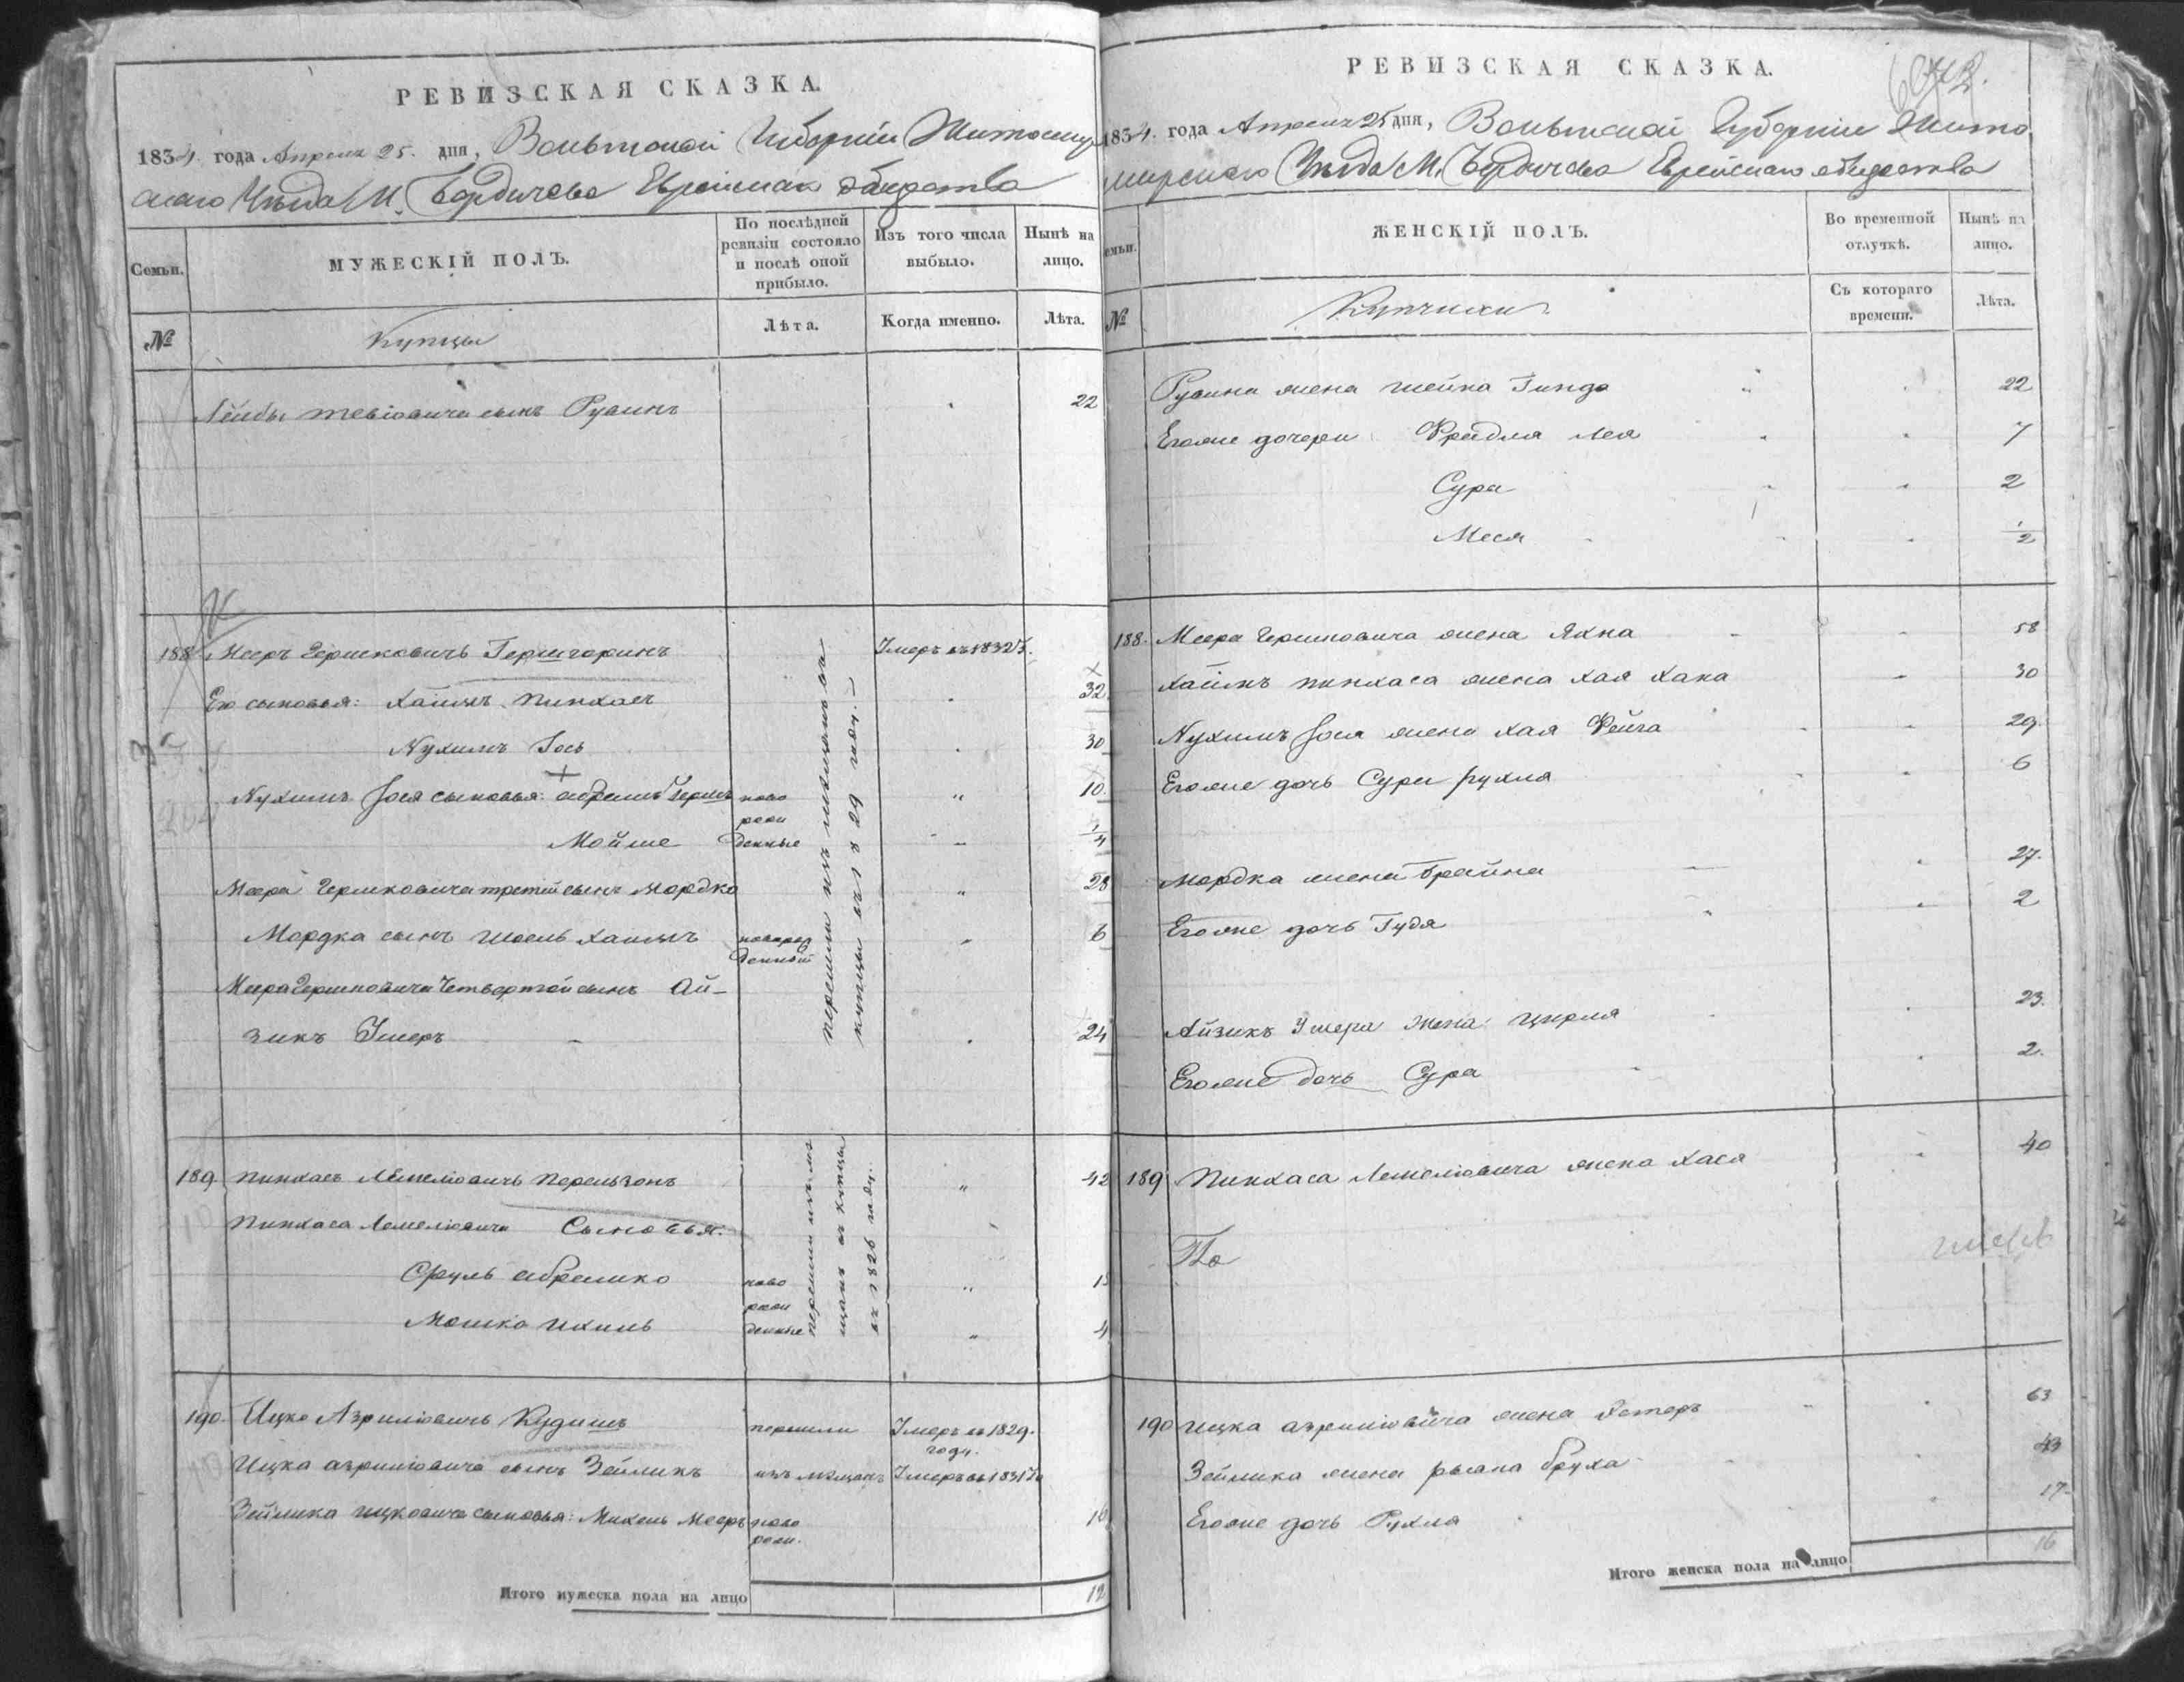 РЕВИЗСКАЯ СКАЗКА.
1834. года Апреля 25. дня, Волынской Губернии Житомир
скаго Уезда М. Бердичева Еврейскаго общества
Семьи.
МУЖЕСКІЙ ПОЛЪ.
По послѣдней ревизіи состояло и послѣ оной прибыло.
Изъ того числа выбыло.
Нынѣ на лицо.
№
Купцы
Лѣта.
Когда именно.
Лѣта.
Лейбы Тевіовича сынъ Рувинъ 22
188 Мееръ Гершковичъ Умеръ въ 1832
Его сыновья: Хаимъ Пинхасъ 32
Нухимъ Іось 30
Нухимъ Іося сыновья: Абрамъ Гершъ ново 10.
рож
Мойше денные 1/4
Меера Гершковича третій сынъ Мордко 28
Мордка сынъ Шоель Хаимъ новорож 6
денный
Меера Гершковича Четвертой сынъ Ай-
зикъ Умеръ 24
перешли изъ мещанъ въ
купцы въ 1829 году.
189. Пинхасъ Лемеліовичъ Перельзонъ " 42
Пинхаса Лемеліовича Сыновья:
Сруль Абрамко ново "
рож
Мошко Ихиль денные " 4
перешли изъ ме
щанъ въ купцы
въ 1826 году.
190. Ицко Азриліовичъ Кудишъ перешли Умеръ въ 1829.
году.
Ицка Азриліовича сынъ Зейликъ изъ мещанъ Умеръ въ 1831
Зейлика Ицковича сыновья: Михель Мееръ ново
рож.
Итого мужеска пола на лицо 12
РЕВИЗСКАЯ СКАЗКА.
1834. года Апреля 25 дня, Волынской Губерніи Жито
мирскаго Уезда М. Бердичева Еврейскаго общества
семьи.
ЖЕНСКІЙ ПОЛЪ.
Во временной отлучкѣ.
Нынѣ на лицо.
№
Купчихи
Съ котораго времени.
Лѣта.
Рувина жена Шейна Гинда 22
Егоже дочери Фрейдля Лея 7
Сура 2
Меся 1/2
188. Меера Гершковича жена Яхна 58
Хаимъ Пинхаса жена Хая Хана 30
Нухимъ Іося жена Хая Фейга 29.
Егоже дочь Сура Рухля 6
Мордка жена Брайна 27.
Егоже дочь Гудя 2
Айзикъ Умера жена Цирля 23.
Егоже дочь Сура 2.
189 Пинхаса Лемеліовича жена Хася 40
190 Ицка Азриліовича жена Эстеръ 63
Зейлика жена Рысана Бруха 43
Егоже дочь Рухля 17
Итого женска пола на лицо 16